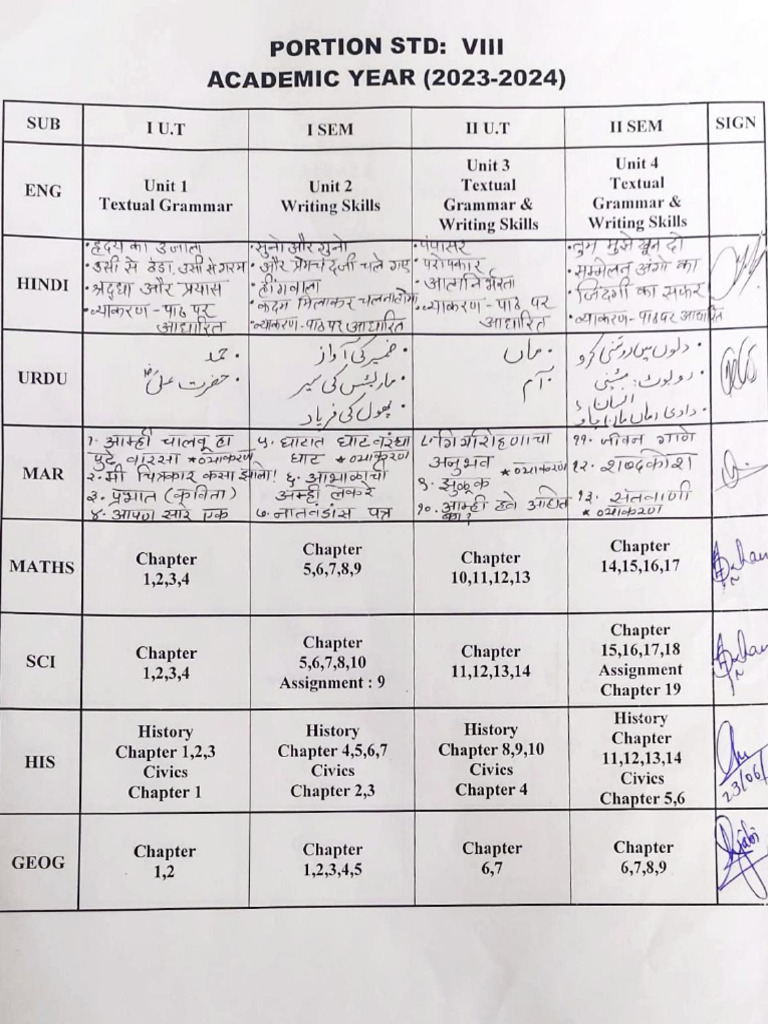 PORTION STD: VIII
ACADEMIC YEAR (2023-2024)
SUB I U.T I SEM II U.T II SEM SIGN
ENG
Unit 1
Textual Grammar
Unit 2
Writing Skills
Unit 3
Textual
Grammar &
Writing Skills
Unit 4
Textual
Grammar &
Writing Skills
HINDI
• हृदय का उजाला
• उसी से ठंडा, उसी से गरम
• श्रद्धा और प्रयास
• व्याकरण - पाठ पर
आधारित
• सुनो और सुनो
• और प्रेमचंदजी चले गए
• हींगवाला
• कदम मिलाकर चलना होगा
• व्याकरण - पाठ पर आधारित
• पंपासर
• परोपकार
• आत्मनिर्भरता
• व्याकरण - पाठ पर
आधारित
• तुम मुझे खून दो
• सम्मेलन अंगों का
• जिंदगी का सफर
• व्याकरण - पाठ पर आधारित
URDU
• حمد
• حضرت علیؓ
• ضمیر کی آواز
• ماریشس کی سیر
• پھول کی فریاد
• ماں
• آم
• دلوں میں روشنی کرو
• روبوٹ: مشینی
انسان
MAR
१. आम्ही चालवू हा
पुढे वारसा * व्याकरण
२. मी चित्रकार कसा झालो!
३. प्रभात (कविता)
४. आपण सारे एक
५. घाटात घाट वरंधा
घाट * व्याकरण
६. आभाळाची
आम्ही लेकरे
७. नातवंडांस पत्र
८. गिर्यारोहणाचा
अनुभव * व्याकरण
९. झुळूक
१०. आम्ही हवे आहोत
का?
११. जीवन गाणे
१२. शब्दकोश
१३. संतवाणी
* व्याकरण
MATHS
Chapter
1,2,3,4
Chapter
5,6,7,8,9
Chapter
10,11,12,13
Chapter
14,15,16,17
SCI
Chapter
1,2,3,4
Chapter
5,6,7,8,10
Assignment : 9
Chapter
11,12,13,14
Chapter
15,16,17,18
Assignment
Chapter 19
HIS
History
Chapter 1,2,3
Civics
Chapter 1
History
Chapter 4,5,6,7
Civics
Chapter 2,3
History
Chapter 8,9,10
Civics
Chapter 4
History
Chapter
11,12,13,14
Civics
Chapter 5,6
23/06/
GEOG
Chapter
1,2
Chapter
1,2,3,4,5
Chapter
6,7
Chapter
6,7,8,9